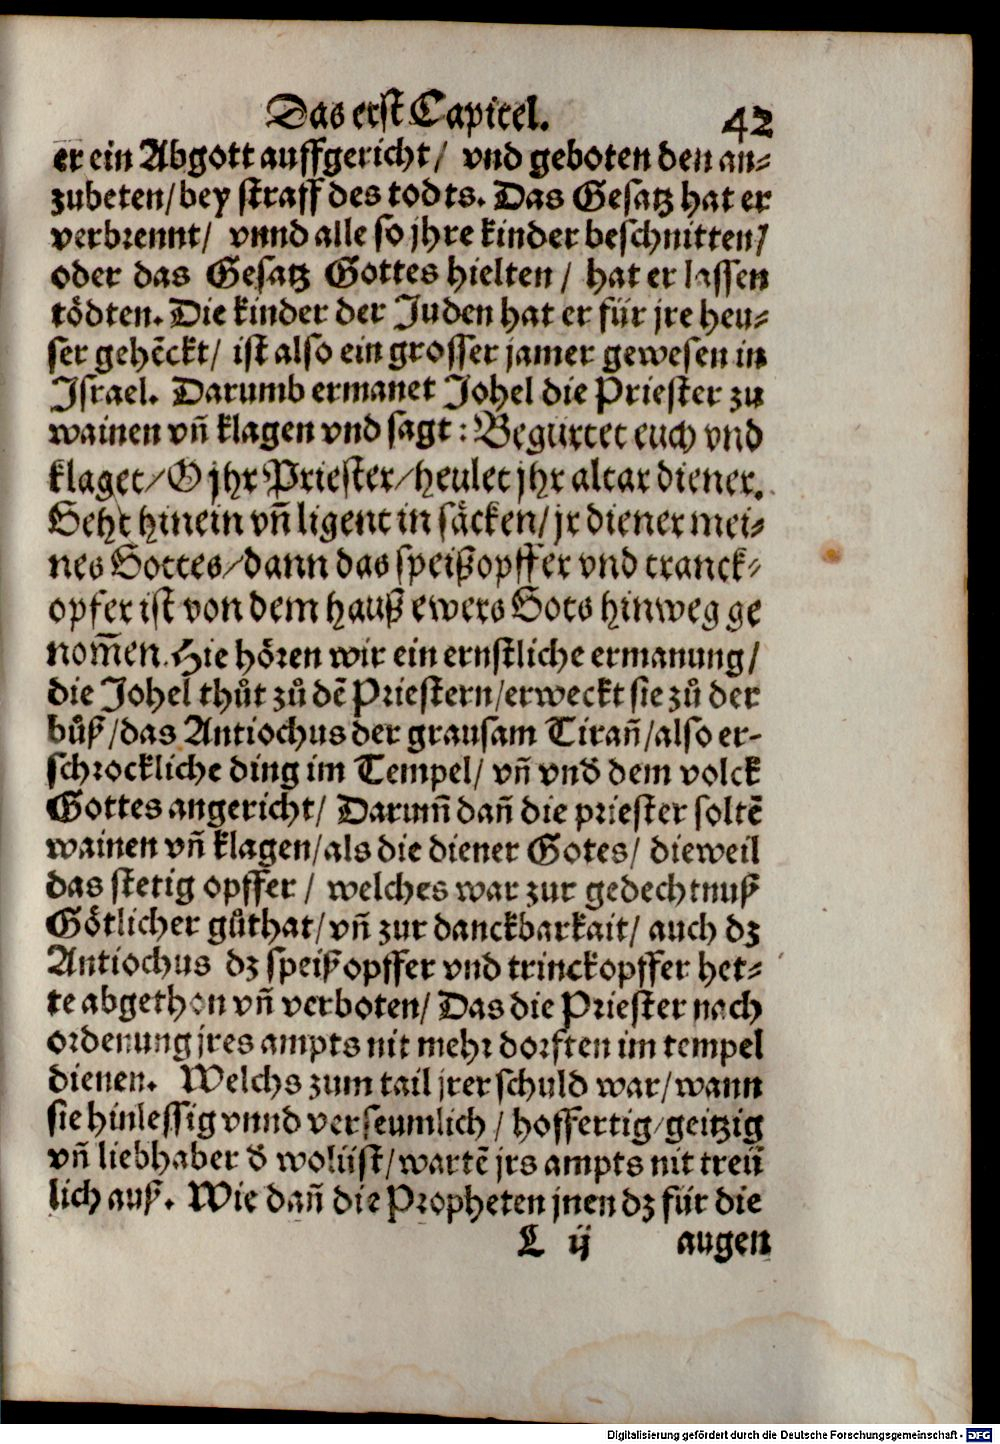 Das erst Capitel. 42
er ein Abgott auffgericht/ vnd geboten den an-
zubeten/bey straff des todts. Das Gesatz hat er
verbrennt/ vnnd alle so jhre kinder beschnitten/
oder das Gesatz Gottes hielten/ hat er lassen
tödten. Die kinder der Juden hat er für jre heu-
ser gehēckt/ ist also ein grosser jamer gewesen in
Israel. Darumb ermanet Johel die Priester zu
wainen vñ klagen vnd sagt: Begürtet euch vnd
klaget/O jhr Priester/heulet jhr altar diener.
Geht hinein vñ ligent in säcken/jr diener mei-
nes Gottes/dann das speißopffer vnd tranck-
opfer ist von dem hauß ewers Gots hinweg ge
nom̃en. Hie hören wir ein ernstliche ermanung/
die Johel thůt zů dē Priestern/erweckt sie zů der
bůß/das Antiochus der grausam Tirañ/also er-
schrockliche ding im Tempel/ vñ vnd dem volck
Gottes angericht/ Darum̃ dañ die priester soltē
wainen vñ klagen/als die diener Gotes/ dieweil
das stetig opffer/ welches war zur gedechtnuß
Götlicher gůthat/vñ zur danckbarkait/ auch dz
Antiochus dz speißopffer vnd trinckopffer het-
te abgethon vñ verboten/ Das die Priester nach
ordenung jres ampts nit mehr dorfften im tempel
dienen. Welchs zum tail jrer schuld war/wann
sie hinlessig vnnd verseumlich/ hoffertig/geitzig
vñ liebhaber d wolüst/wartē jrs ampts nit treü
lich auß. Wie dañ die Propheten jnen dz für die
L ij augen
Digitalisierung gefördert durch die Deutsche Forschungsgemeinschaft - DFG